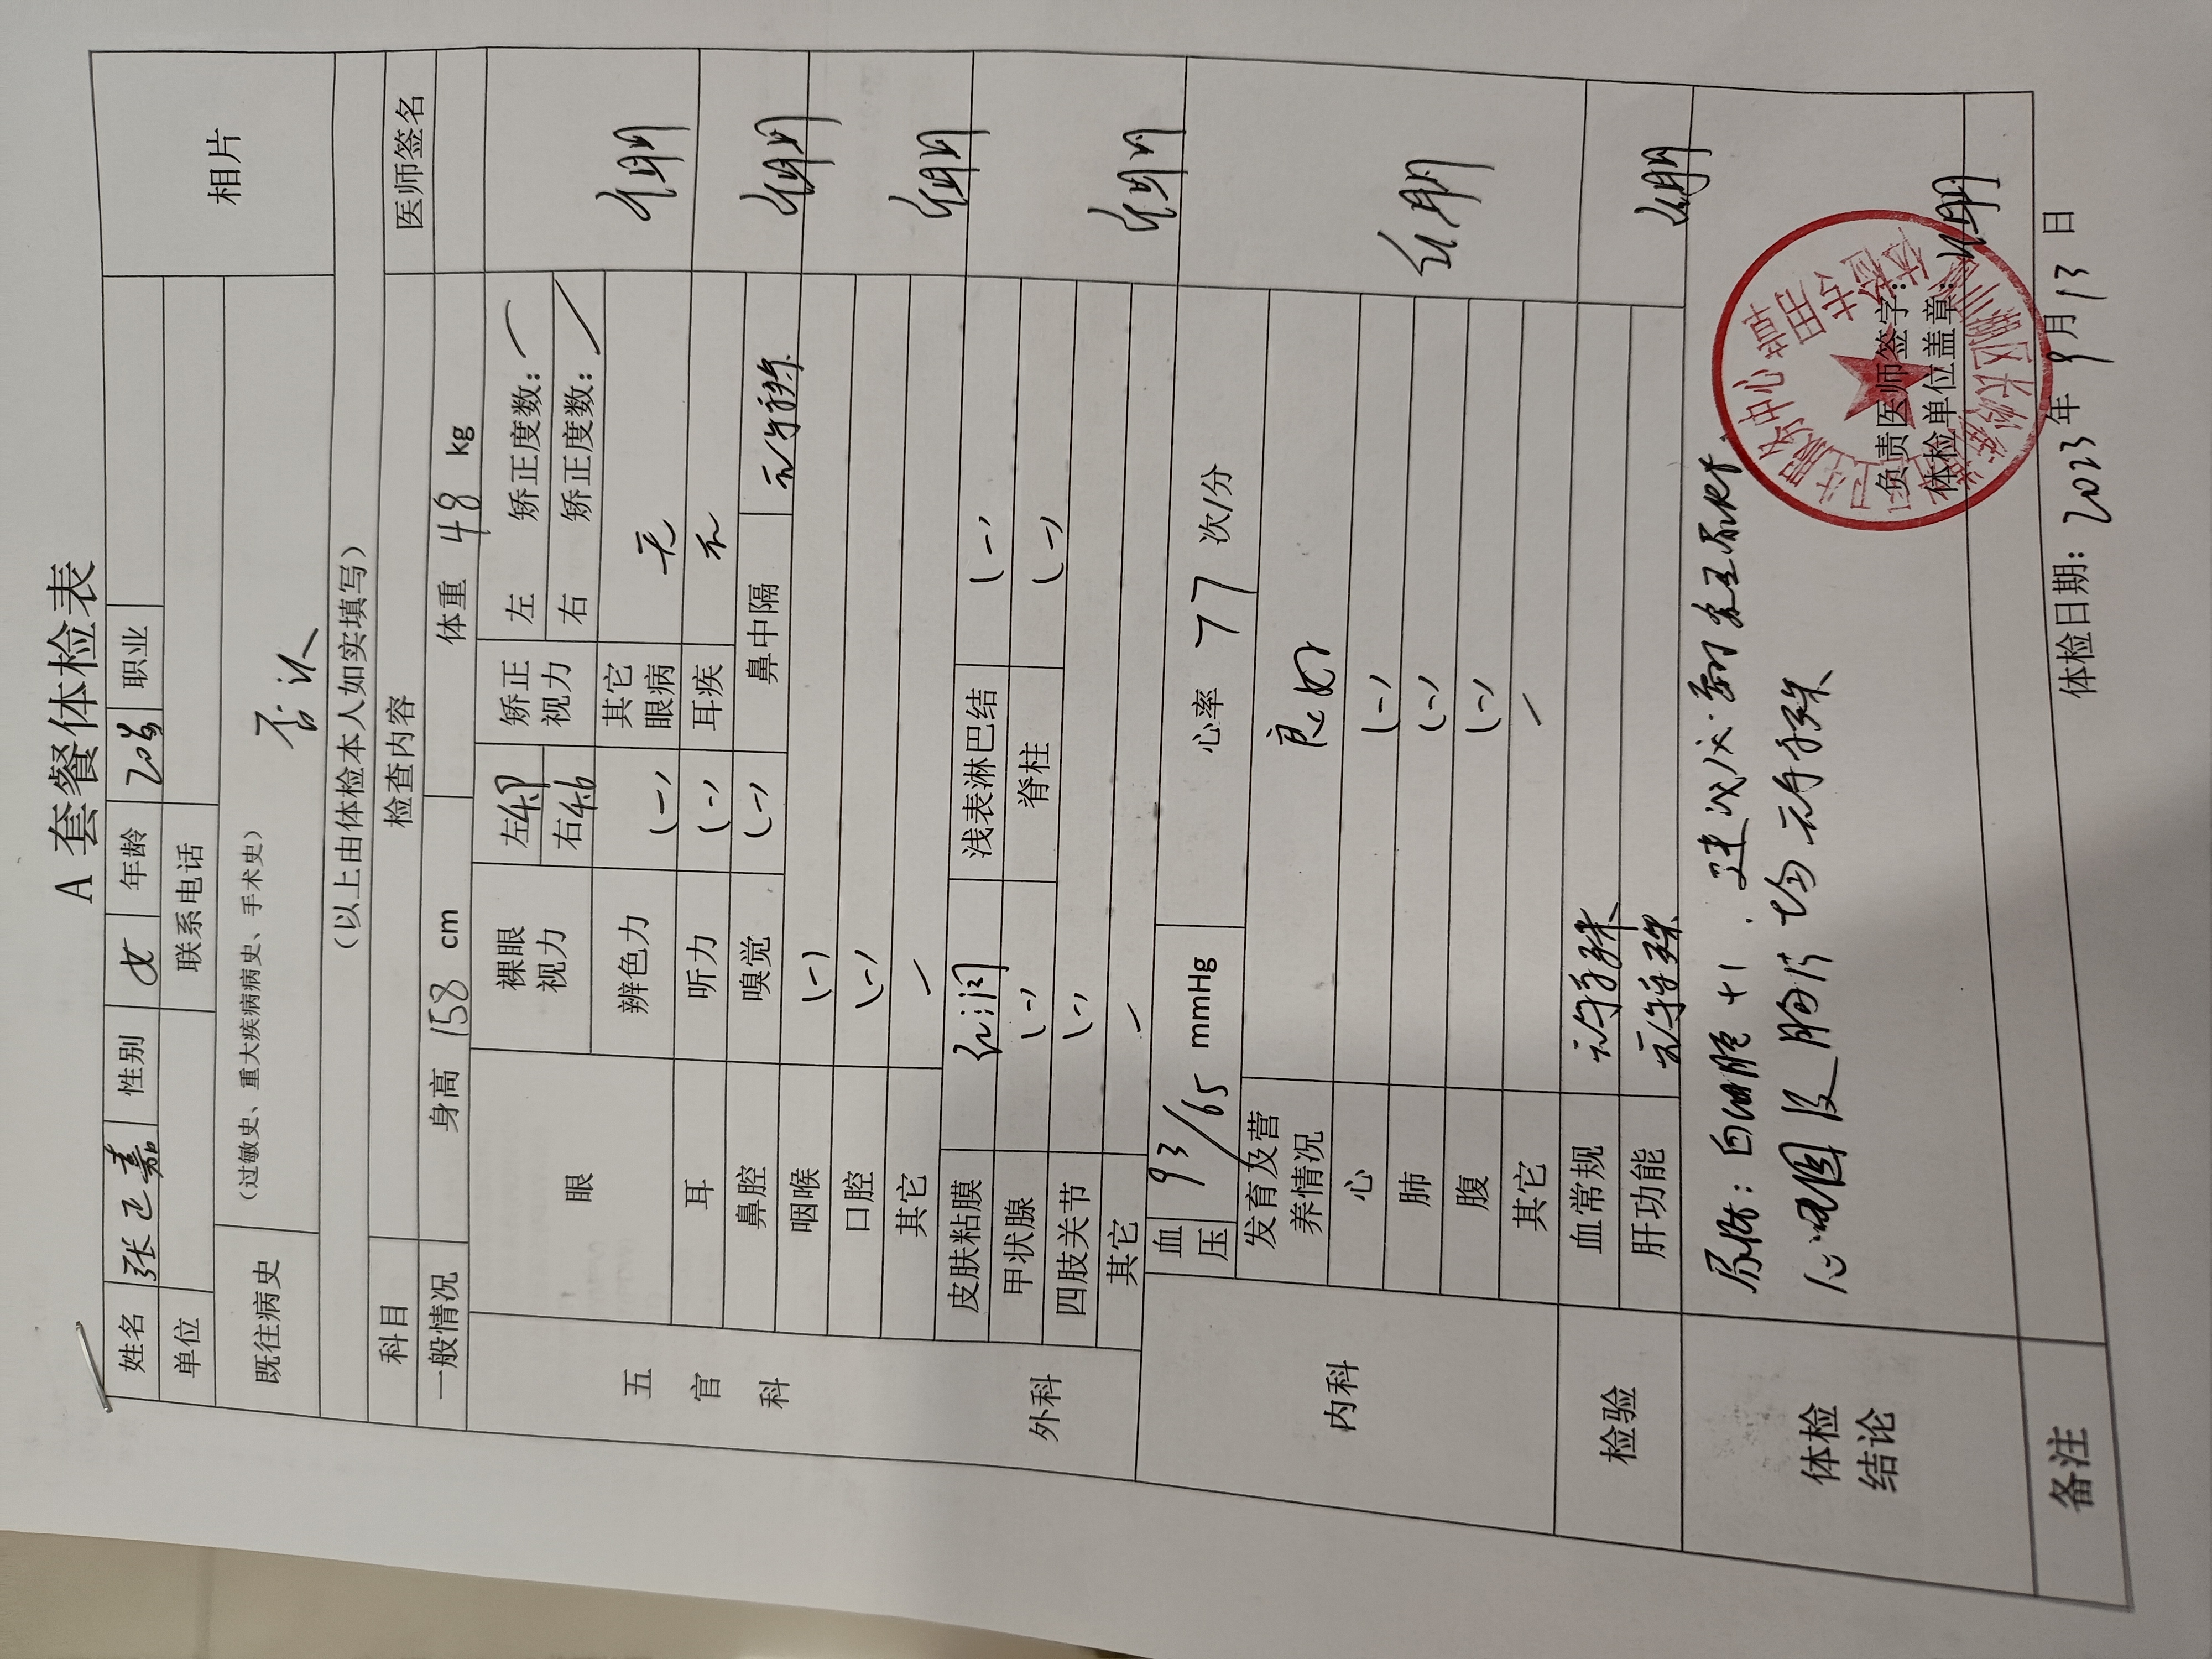 A 套餐体检表
姓名 张正嘉 性别 女 年龄 20岁 职业 相片
单位 联系电话
既往病史 （过敏史、重大疾病病史、手术史）
否认
（以上由体检本人如实填写）
科目 检查内容 医师签名
一般情况 身高 158 cm 体重 48 kg
五官科 眼 裸眼视力 左 右4.6 矫正视力 左 矫正度数： 右 矫正度数：
辨色力 (-) 其它眼病 无
耳 听力 (-) 耳疾 无
鼻腔 嗅觉 (-) 鼻中隔 无特殊
咽喉 (-)
口腔 (-)
其它 /
外科 皮肤粘膜 红润 浅表淋巴结 (-)
甲状腺 (-) 脊柱 (-)
四肢关节 (-)
其它 /
内科 血压 93/65 mmHg 心率 77 次/分
发育及营养情况 良好
心 (-)
肺 (-)
腹 (-)
其它 /
检验 血常规 无特殊
肝功能 无特殊
体检结论 尿检：白细胞 +1 . 建议
心电图及胸片均无特殊
负责医师签字：
体检单位盖章：
卫生服务中心
体检专用章
备注
体检日期：2023年9月13日